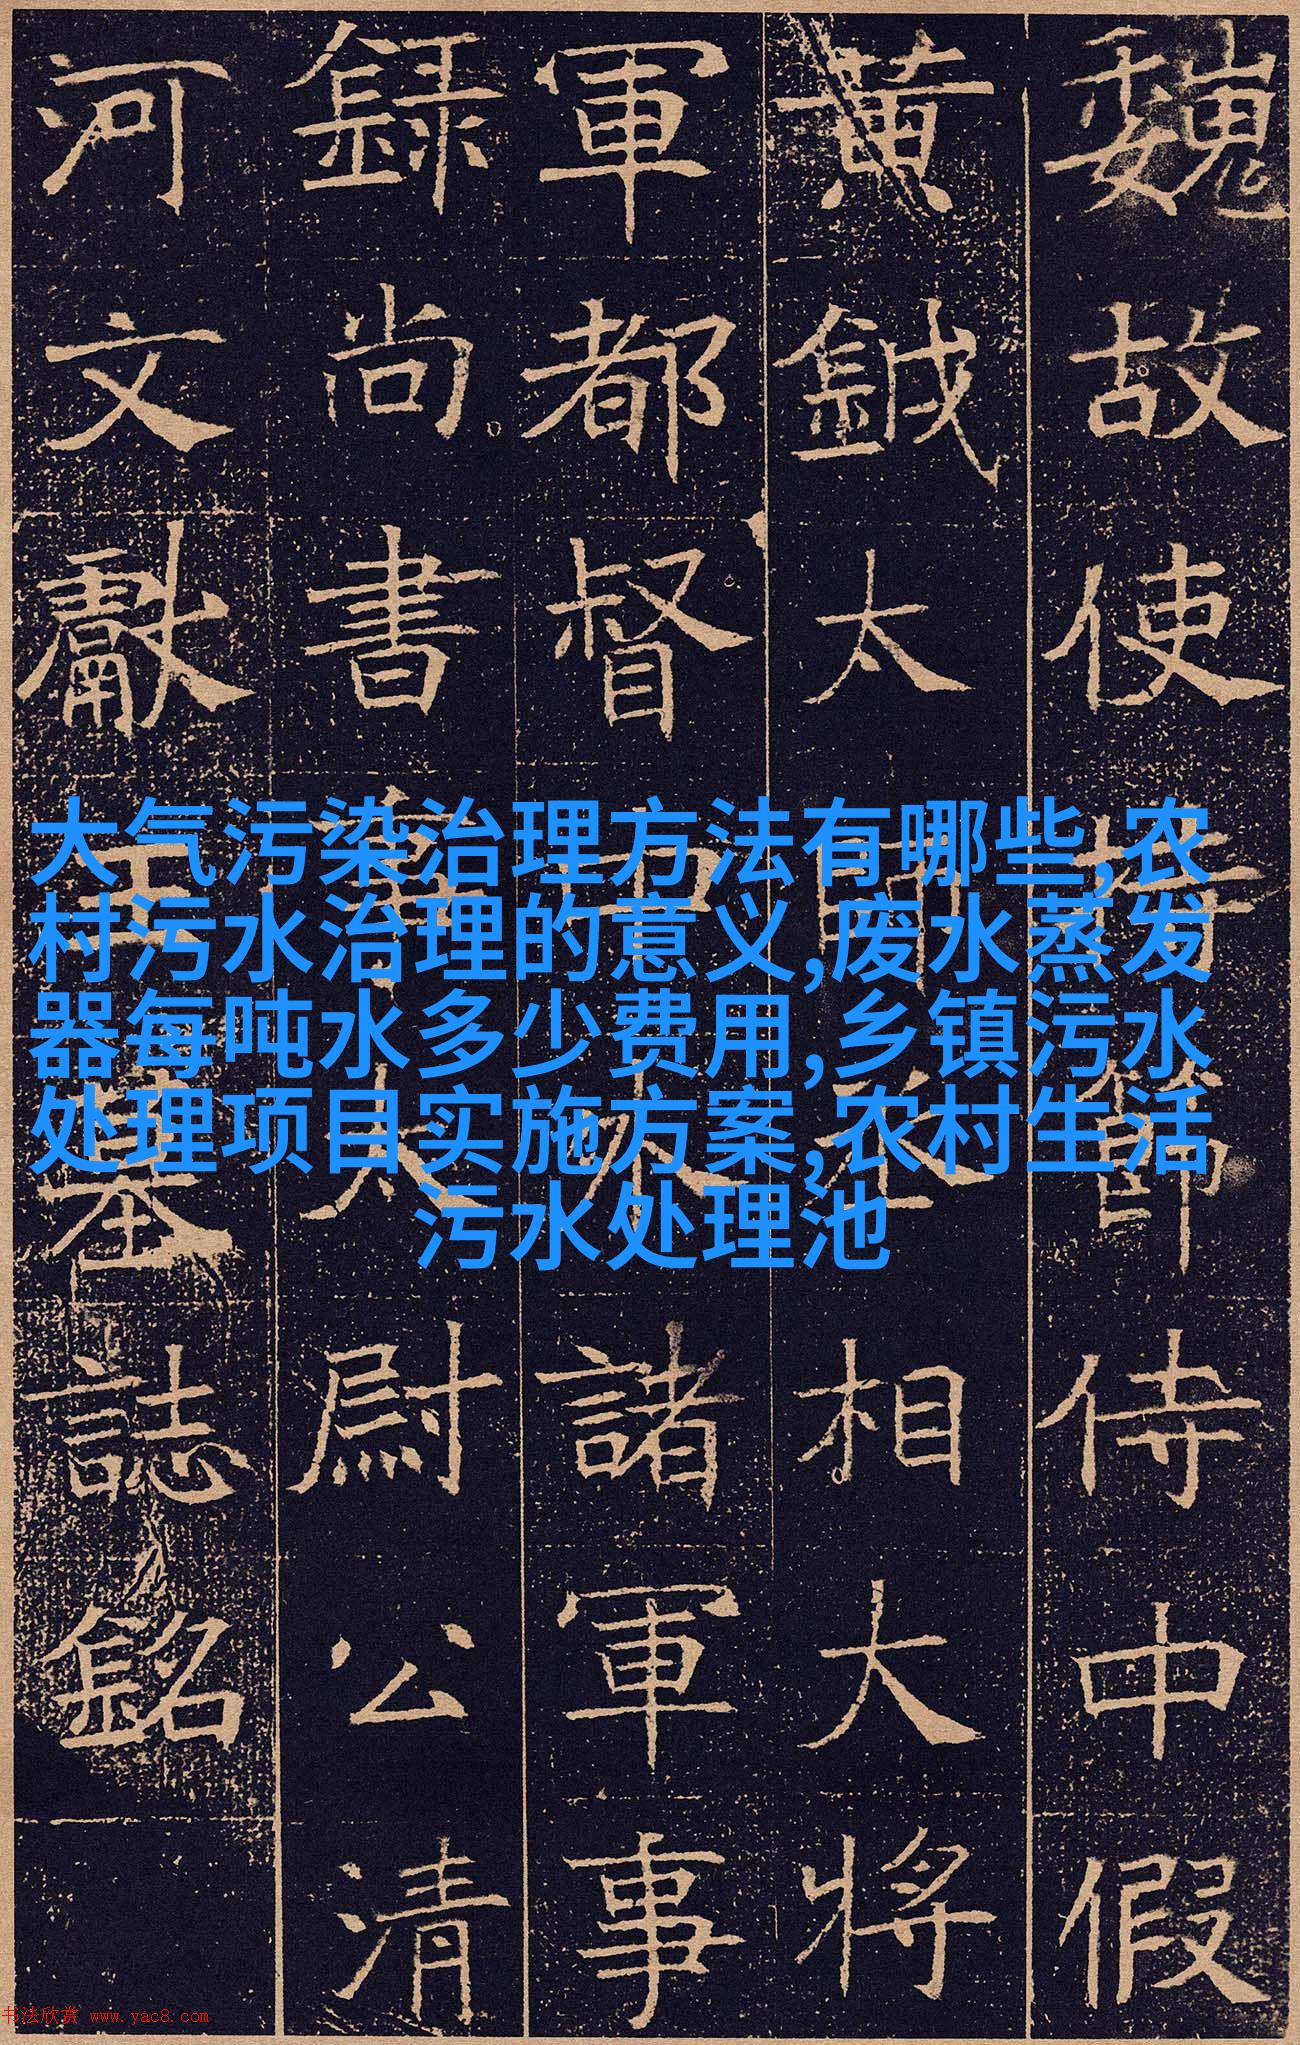 魏故使持節侍中假
黃鉞太丞相大將
軍都督中外諸軍事
錄尚書事太尉公清
河文獻王墓誌銘
大气污染治理方法有哪些,农
村污水治理的意义,废水蒸发
器每吨水多少费用,乡镇污水
处理项目实施方案,农村生活
污水处理池
书法欣赏 www.yac8.com